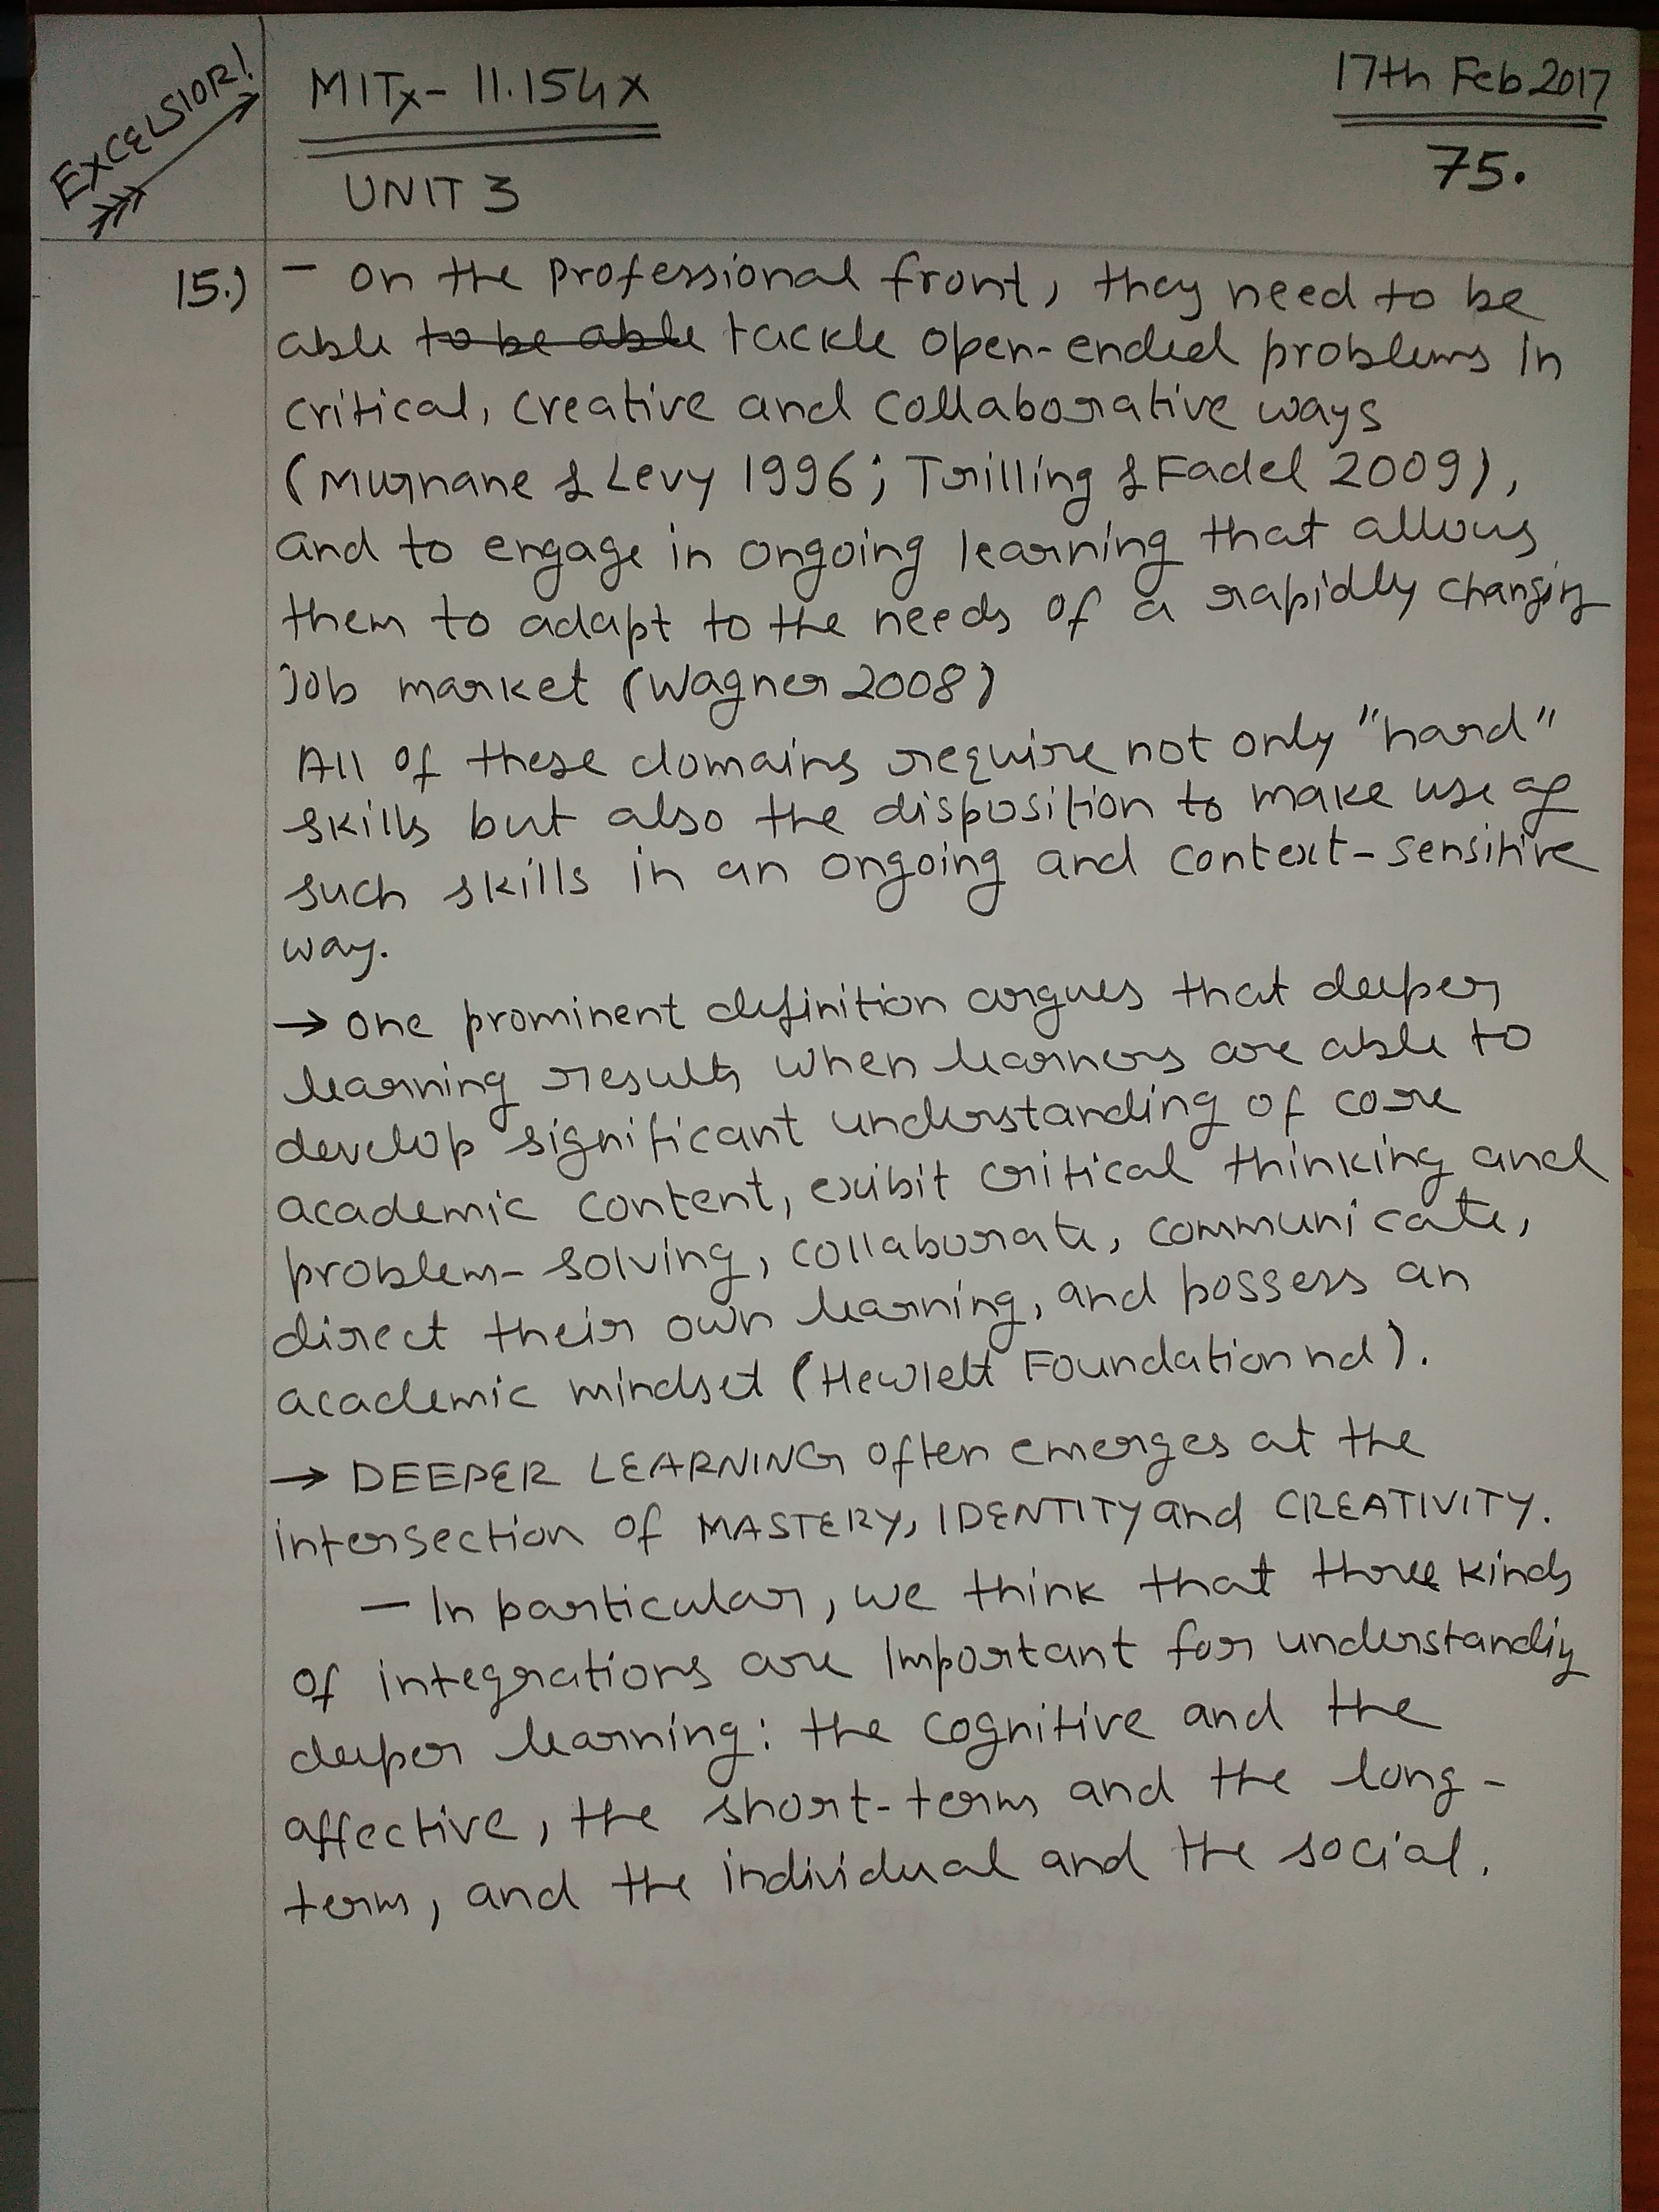 EXCELSIOR!
MITx- 11.154x
17th Feb 2017
UNIT 3
75.
15.) - On the professional front, they need to be
able to be able tackle open-ended problems in
critical, creative and collaborative ways
(Murnane & Levy 1996; Trilling & Fadel 2009),
and to engage in ongoing learning that allows
them to adapt to the needs of a rapidly changing
job market (Wagner 2008)
All of these domains require not only "hard"
skills but also the disposition to make use of
such skills in an ongoing and context-sensitive
way.
→ One prominent definition argues that deeper
learning results when learners are able to
develop significant understanding of core
academic content, exibit critical thinking and
problem-solving, collaborate, communicate,
direct their own learning, and possess an
academic mindset (Hewlett Foundation nd).
→ DEEPER LEARNING often emerges at the
intersection of MASTERY, IDENTITY and CREATIVITY.
- In particular, we think that three kinds
of integrations are important for understanding
deeper learning: the cognitive and the
affective, the short-term and the long-
term, and the individual and the social.